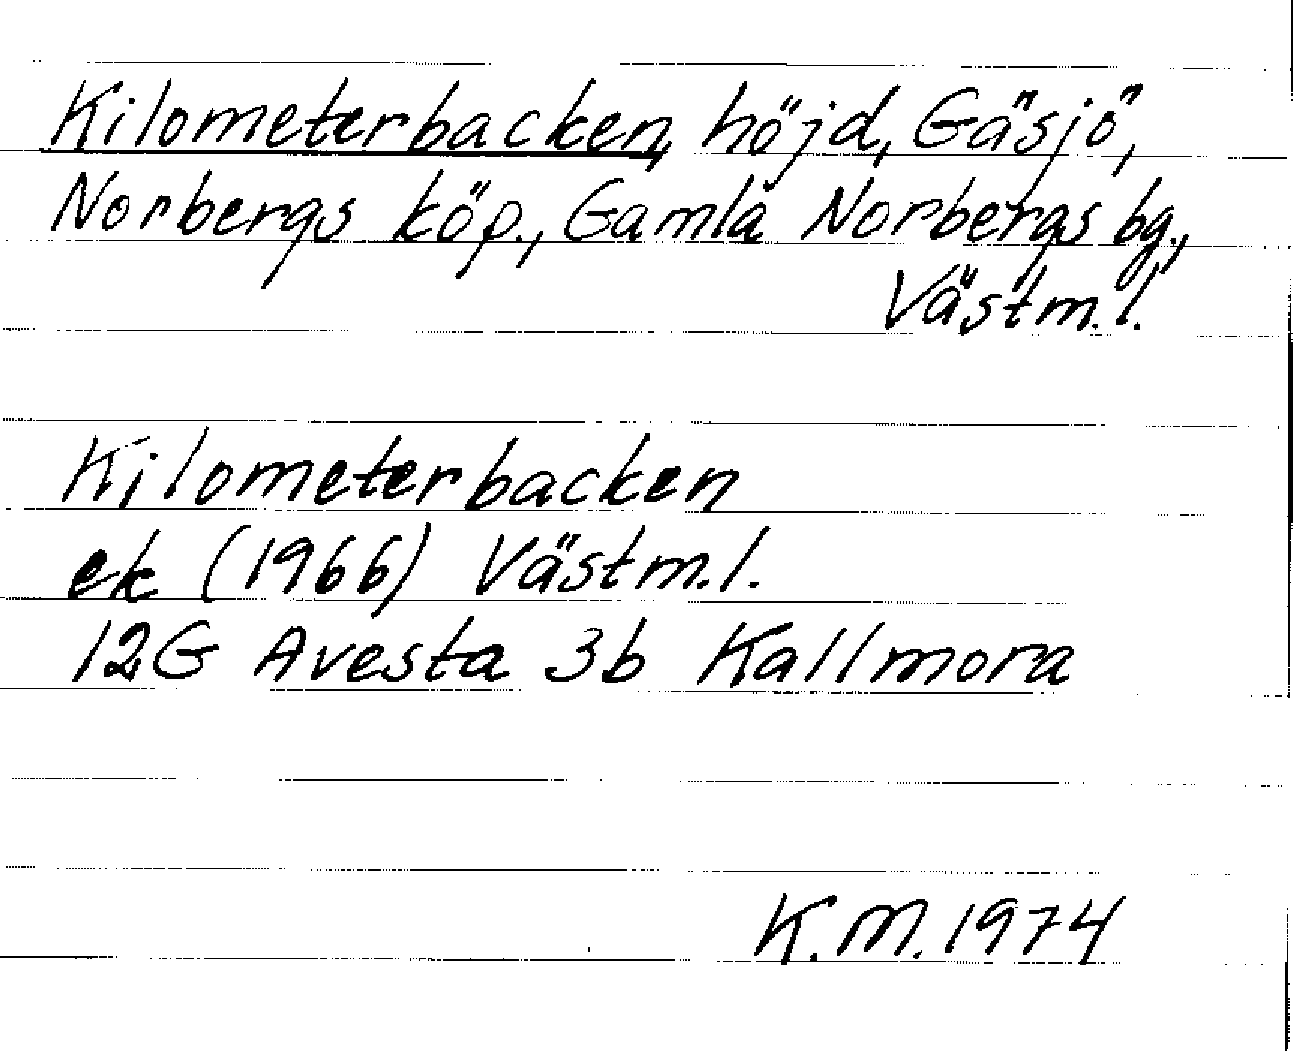 Kilometerbacken, höjd, Gäsjö,
Norbergs köp., Gamla Norbergs bg.,
Västm.l.
Kilometerbacken
ek (1966) Västm.l.
12G Avesta 3b Kallmora
K.M. 1974